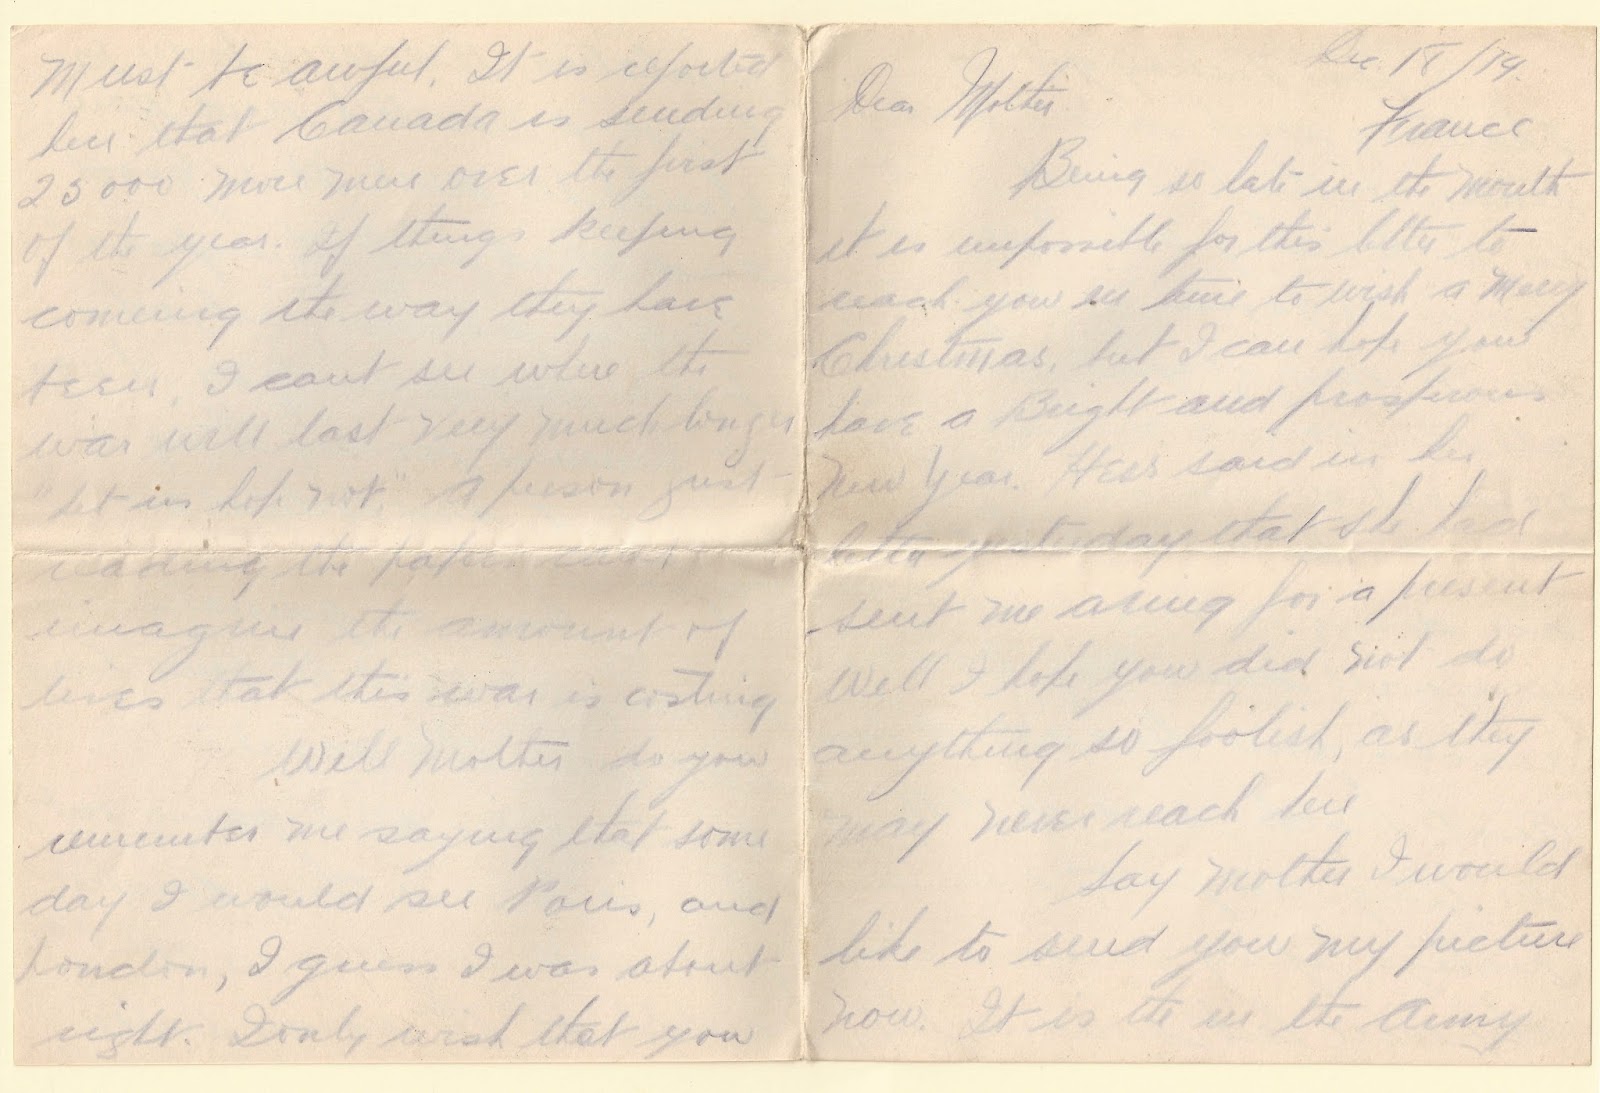 Dec. 18/14.
Dear Mother
France
Being so late in the month
it is impossible for this letter to
reach you in time to wish a Merry
Christmas, but I can hope you
have a Bright and prosperous
New Year. Hess said in her
letter yesterday that she had
sent me along for a present
Well I hope you did not do
anything so foolish, as they
may never reach here
Say Mother I would
like to send you my picture
now. It is the in the Army
Must be awful. It is reported
here that Canada is sending
25000 more men over the first
of the year. If things keeping
comeing the way they have
been, I cant see where the
war will last very much longer
"Let us hope not." A person just
reading the papers cant
imagine the amount of
lives that this war is costing
Well Mother do you
remember me saying that some
day I would see Paris, and
London, I guess I was about
right. I only wish that you